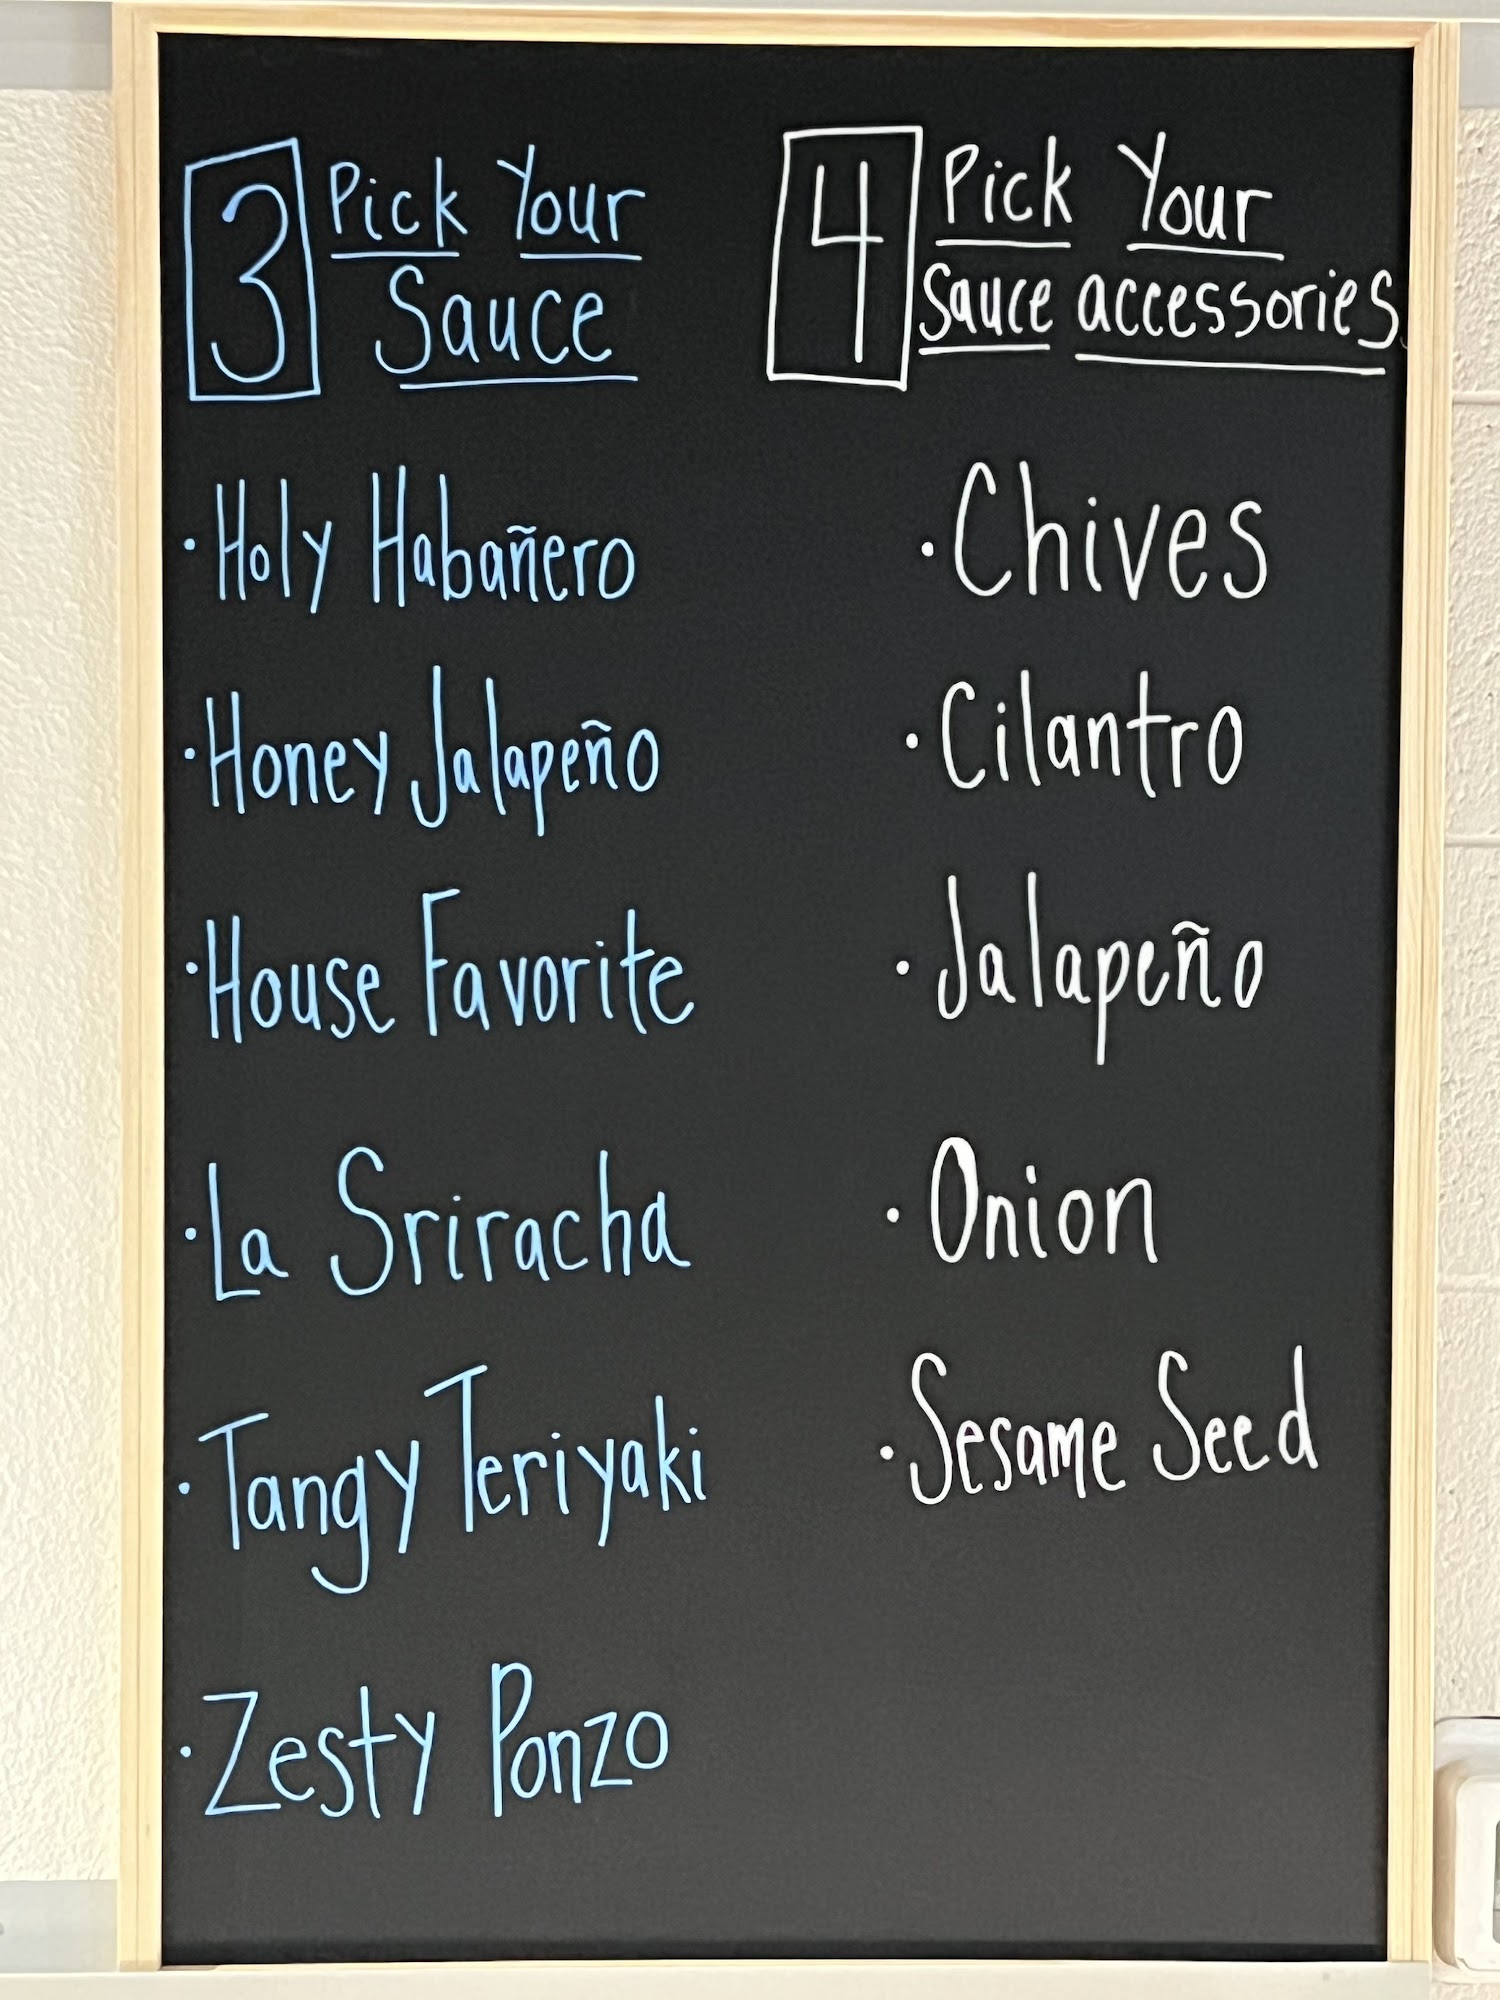 3 Pick Your
Sauce
· Holy Habañero
· Honey Jalapeño
· House Favorite
· La Sriracha
· Tangy Teriyaki
· Zesty Ponzo
4 Pick Your
Sauce accessories
· Chives
· Cilantro
· Jalapeño
· Onion
· Sesame Seed